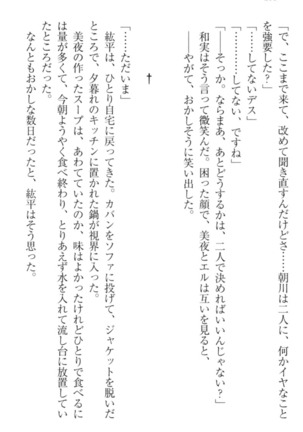 「で、ここまで来て、改めて聞き直すんだけどさ……朝川は二人に、何かイヤなこと
を強要した？」
「……してないデス」
「……してない、ですね」
「――そうか。ならまあ、あとどうするかは、二人で決めればいいんじゃない？」
和実はそう言って微笑んだ。困った顔で、美夜とエルは互いを見ると、
――やがて、おかしそうに笑い出した。
†
「……ただいま」
紘平は、ひとり自宅に戻ってきた。カバンをソファに投げて、ジャケットを脱いだ
ところで、夕暮れのキッチンに置かれた鍋が視界に入った。
美夜の作ったスープは、あわてていたのか、味はよかったけれどひとりで食べるに
は量が多くて、今朝ようやく食べ終わり、とりあえず水を入れて流し台に放置してい
たところだった。
なんともおかしな数日だったと、紘平はそう思った。